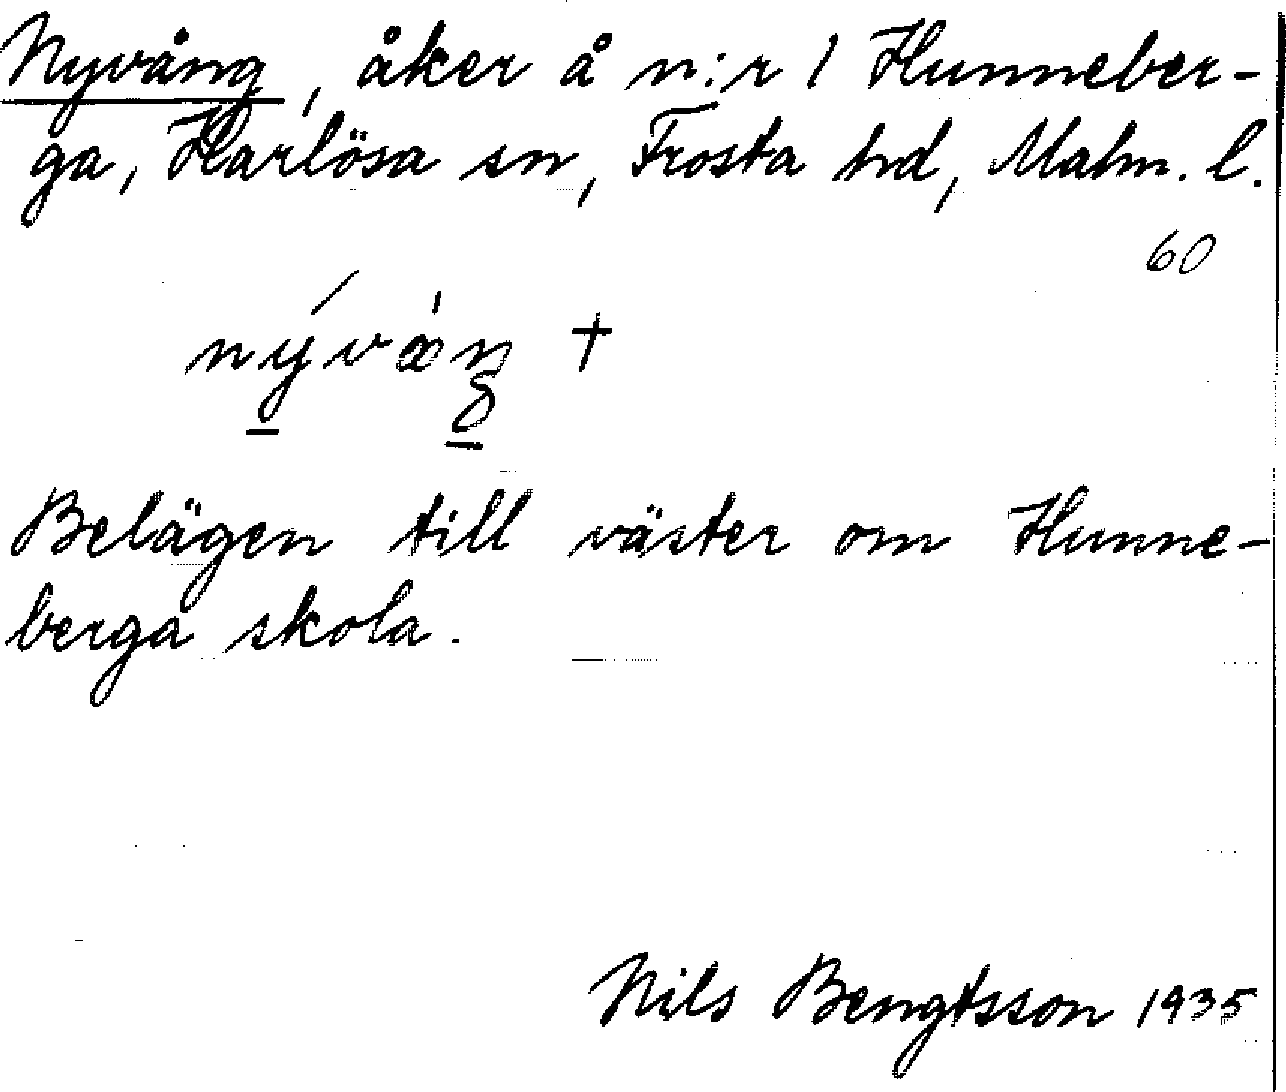 Nyvång, åker å n:r 1 Hunneber-
ga, Harlösa sn, Frosta hd, Malm. l.
60
Belägen till väster om Hunne-
berga skola.
Nils Bengtsson 1935